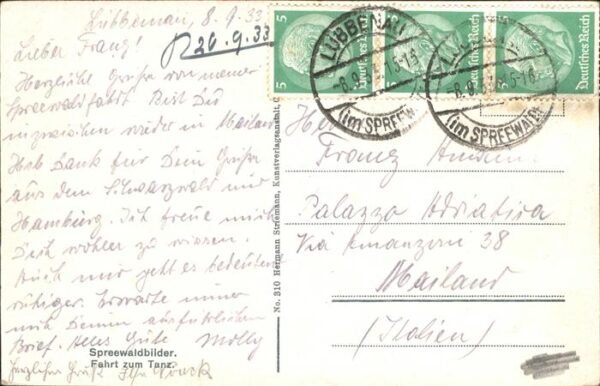 Lübbenau, 8.9.33.
Lieber Franz!
26.9.33
Herzliche Grüße von meiner
Spreewaldfahrt. Bist Du
inzwischen wieder in Mailand
Hab Dank für Dein Grüße
aus dem Schwarzwald und
Hamburg. Ich freue mich
Dich wohler zu wissen.
Auch mir geht es bedeutend
ruhiger. Erwarte immer
noch Deinen ausführlichen
Brief. Alles Gute Molly
Herzliche Grüße
Spreewaldbilder.
Fahrt zum Tanz.
No. 310 Hermann Striemann, Kunstverlagsanstalt, C
5
Deutsches Reich
5
Deutsches Reich
LÜBBENAU
-8.9.33
(im SPREEWALD)
-8.9.33
(im SPREEWALD)
Franz
Palazzo Adriatica
Via Amanzoni 38
Mailand
(Italien)